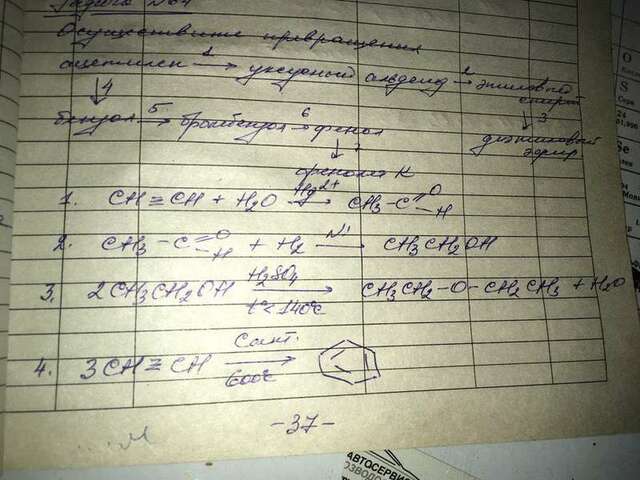 Задача №64
Осуществите превращения
ацетилен 1→ уксусный альдегид 2→ этиловый спирт
↓4 ↓3
бензол 5→ бромбензол 6→ фенол диэтиловый эфир
↓7
фенолят K
1. CH≡CH + H2O Hg2+→ CH3-C=O-H
2. CH3-C=O-H + H2 Ni→ CH3CH2OH
3. 2CH3CH2OH H2SO4→ t°<140°C CH3CH2-O-CH2CH3 + H2O
4. 3CH≡CH Cакт.→ 600°C
-37-
АВТОСЕРВИС